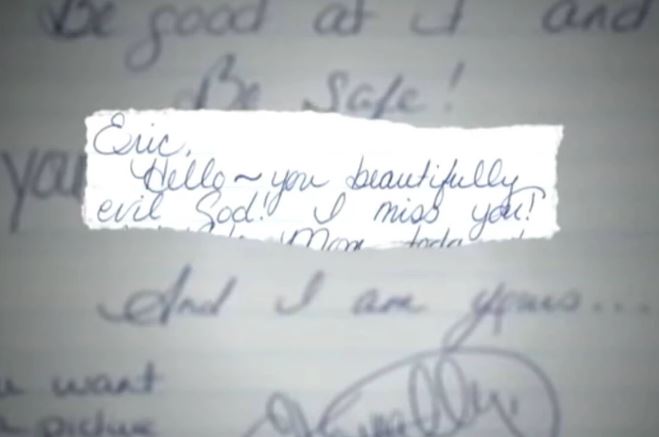 Be good at it and
Be Safe!
you
Eric,
Hello~you beautifully
evil God! I miss you!
Mom today
And I am yours...
want
picture